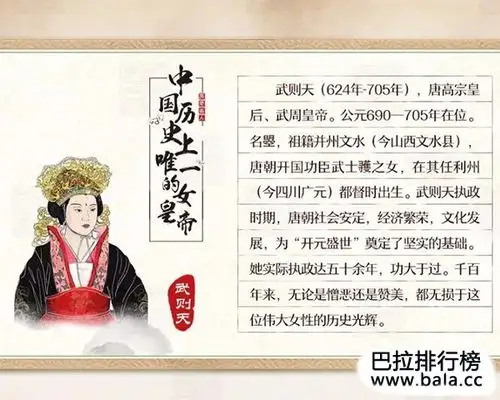 中国历史上唯一的女皇帝
武则天
武则天（624年-705年），唐高宗皇
后、武周皇帝。公元690—705年在位。
名曌，祖籍并州文水（今山西文水县），
唐朝开国功臣武士彠之女，在其任利州
（今四川广元）都督时出生。武则天执政
时期，唐朝社会安定，经济繁荣，文化发
展，为“开元盛世”奠定了坚实的基础。
她实际执政达五十余年，功大于过。千百
年来，无论是憎恶还是赞美，都无损于这
位伟大女性的历史光辉。
巴拉排行榜
www.bala.cc